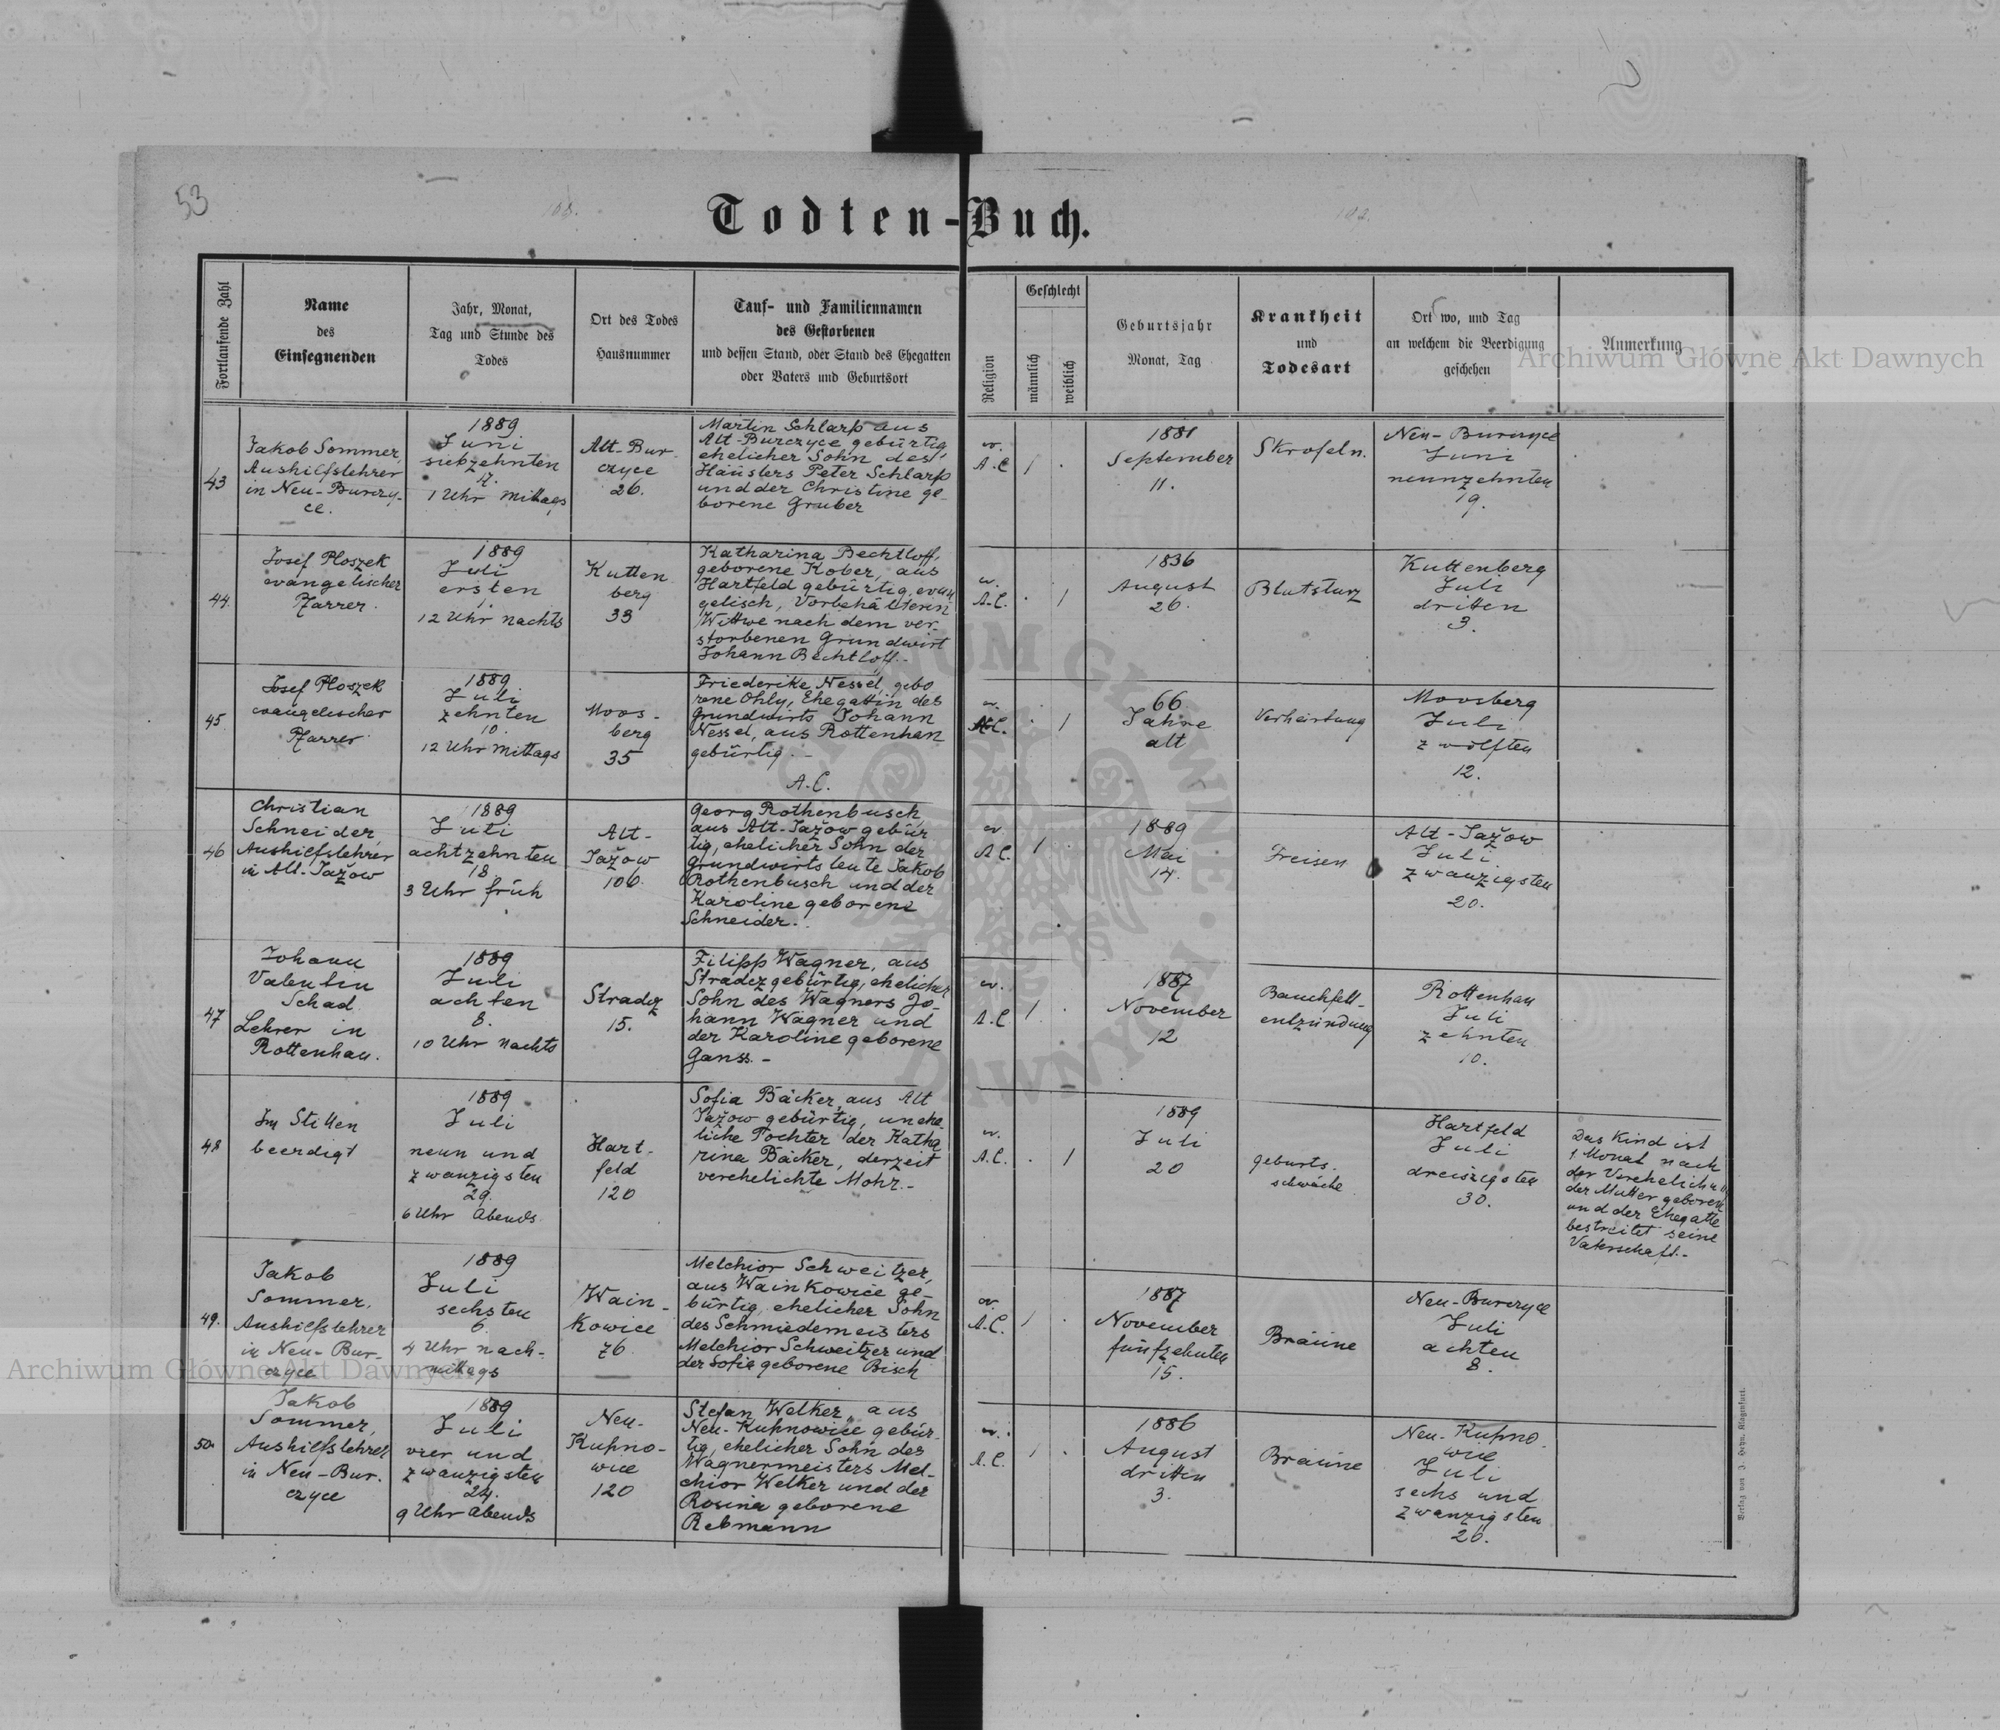 53
Todten-Buch.
Fortlaufende Zahl
Name
des
Einsegnenden
Jahr, Monat,
Tag und Stunde des
Todes
Ort des Todes
Hausnummer
Tauf- und Familiennamen
des Gestorbenen
und dessen Stand, oder Stand des Ehegatten
oder Vaters und Geburtsort
Religion
Geschlecht
männlich
weiblich
Geburtsjahr
Monat, Tag
Krankheit
und
Todesart
Ort wo, und Tag
an welchem die Beerdigung
geschehen
Anmerkung
43
Jakob Sommer,
Aushilfslehrer
in Neu-Burczy-
ce.
1889
Juni
siebzehnten
17.
1 Uhr Mittags
Alt-Bur-
czyce
26.
Martin Schlarp aus
Alt-Burczyce gebürtig,
ehelicher Sohn des
Häuslers Peter Schlarp
und der Christine ge-
borene Gruber
ev.
A.C.
1
1881
September
11.
Skrofeln.
Neu-Burczyce
Juni
neunzehnten
19.
44.
Josef Ploszek
evangelischer
Pfarrer.
1889
Juli
ersten
1.
12 Uhr nachts
Kutten
berg
33
Katharina Bechtloff,
geborene Kober, aus
Hartfeld gebürtig, evan
gelisch, Vorbehälterin
Wittwe nach dem ver-
storbenen Grundwirt
Johann Bechtloff.-
ev.
A.C.
1
1836
August
26.
Blutsturz
Kuttenberg
Juli
dritten
3.
45.
Josef Ploszek
evangelischer
Pfarrer
1889
Juli
zehnten
10.
12 Uhr Mittags
Moos-
berg
35
Friederike Nessel, gebo
rene Ohly, Ehegattin des
Grundwirts Johann
Nessel, aus Rottenhan
gebürtig.-
A.C.
ev.
A.C.
1
66
Jahre
alt
Verhärtung
Moosberg
Juli
zwölften
12.
46
Christian
Schneider
Aushilfslehrer
in Alt-Jažow
1889
Juli
achtzehnten
18
3 Uhr früh
Alt-
Jažow
106
Georg Rothenbusch
aus Alt-Jažow gebür
tig, ehelicher Sohn der
Grundwirtsleute Jakob
Rothenbusch und der
Karoline geborene
Schneider.
ev.
A.C.
1
1889
Mai
14.
Freisen
Alt-Jažow
Juli
zwanzigsten
20.
47
Johann
Valentin
Schad
Lehrer in
Rottenhan.
1889
Juli
achten
8.
10 Uhr nachts
Stradcz
15.
Filipp Wagner, aus
Stradcz gebürtig, ehelicher
Sohn des Wagners Jo-
hann Wagner und
der Karoline geborene
Ganss.-
ev.
A.C
1
1887
November
12
Bauchfell-
entzündung
Rottenhan
Juli
zehnten
10.
48
Im Stillen
beerdigt
1889
Juli
neun und
zwanzigsten
29.
6 Uhr Abends
Hart-
feld
120
Sofia Bäcker, aus Alt
Jažow gebürtig, unehe-
liche Tochter der Katha
rina Bäcker, derzeit
verehelichte Mohr.-
ev.
A.C.
1
1889
Juli
20
Geburts-
schwäche
Hartfeld
Juli
dreiszigsten
30.
Das Kind ist
1 Monat nach
der Verehelichung
der Mutter geboren
und der Ehegatte
bestreitet seine
Vaterschaft.-
49.
Jakob
Sommer,
Aushilfslehrer
in Neu-Bur-
czyce
1889
Juli
sechsten
6.
4 Uhr nach-
mittags
Wain-
kowice
76
Melchior Schweitzer,
aus Wainkowice ge-
bürtig, ehelicher Sohn
des Schmiedemeisters
Melchior Schweitzer und
der Sofia geborene Bisch
ev.
A.C.
1
1887
November
fünfzehnten
15.
Bräune
Neu-Burczyce
Juli
achten
8.
50.
Jakob
Sommer,
Aushilfslehrer
in Neu-Bur-
czyce
1889
Juli
vier und
zwanzigsten
24.
9 Uhr Abends
Neu-
Kupno-
wice
120
Stefan Welker, aus
Neu-Kupnowice gebür-
tig, ehelicher Sohn des
Wagnermeisters Mel-
chior Welker und der
Rosina geborene
Rebmann
ev.
A.C.
1
1886
August
dritten
3.
Bräune
Neu-Kupno-
wice
Juli
sechs und
zwanzigsten
26.
Verlag von J. Heyn, Klagenfurt.
Archiwum Główne Akt Dawnych
Archiwum Główne Akt Dawnych